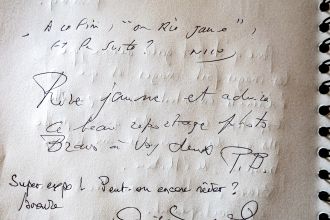 A la fin, "on Rit jaune",
Et la suite?
Rire jaune et admirer
ce beau reportage photo
Bravo à vous deux P.B.
Super expo! Peut-on encore rêver?